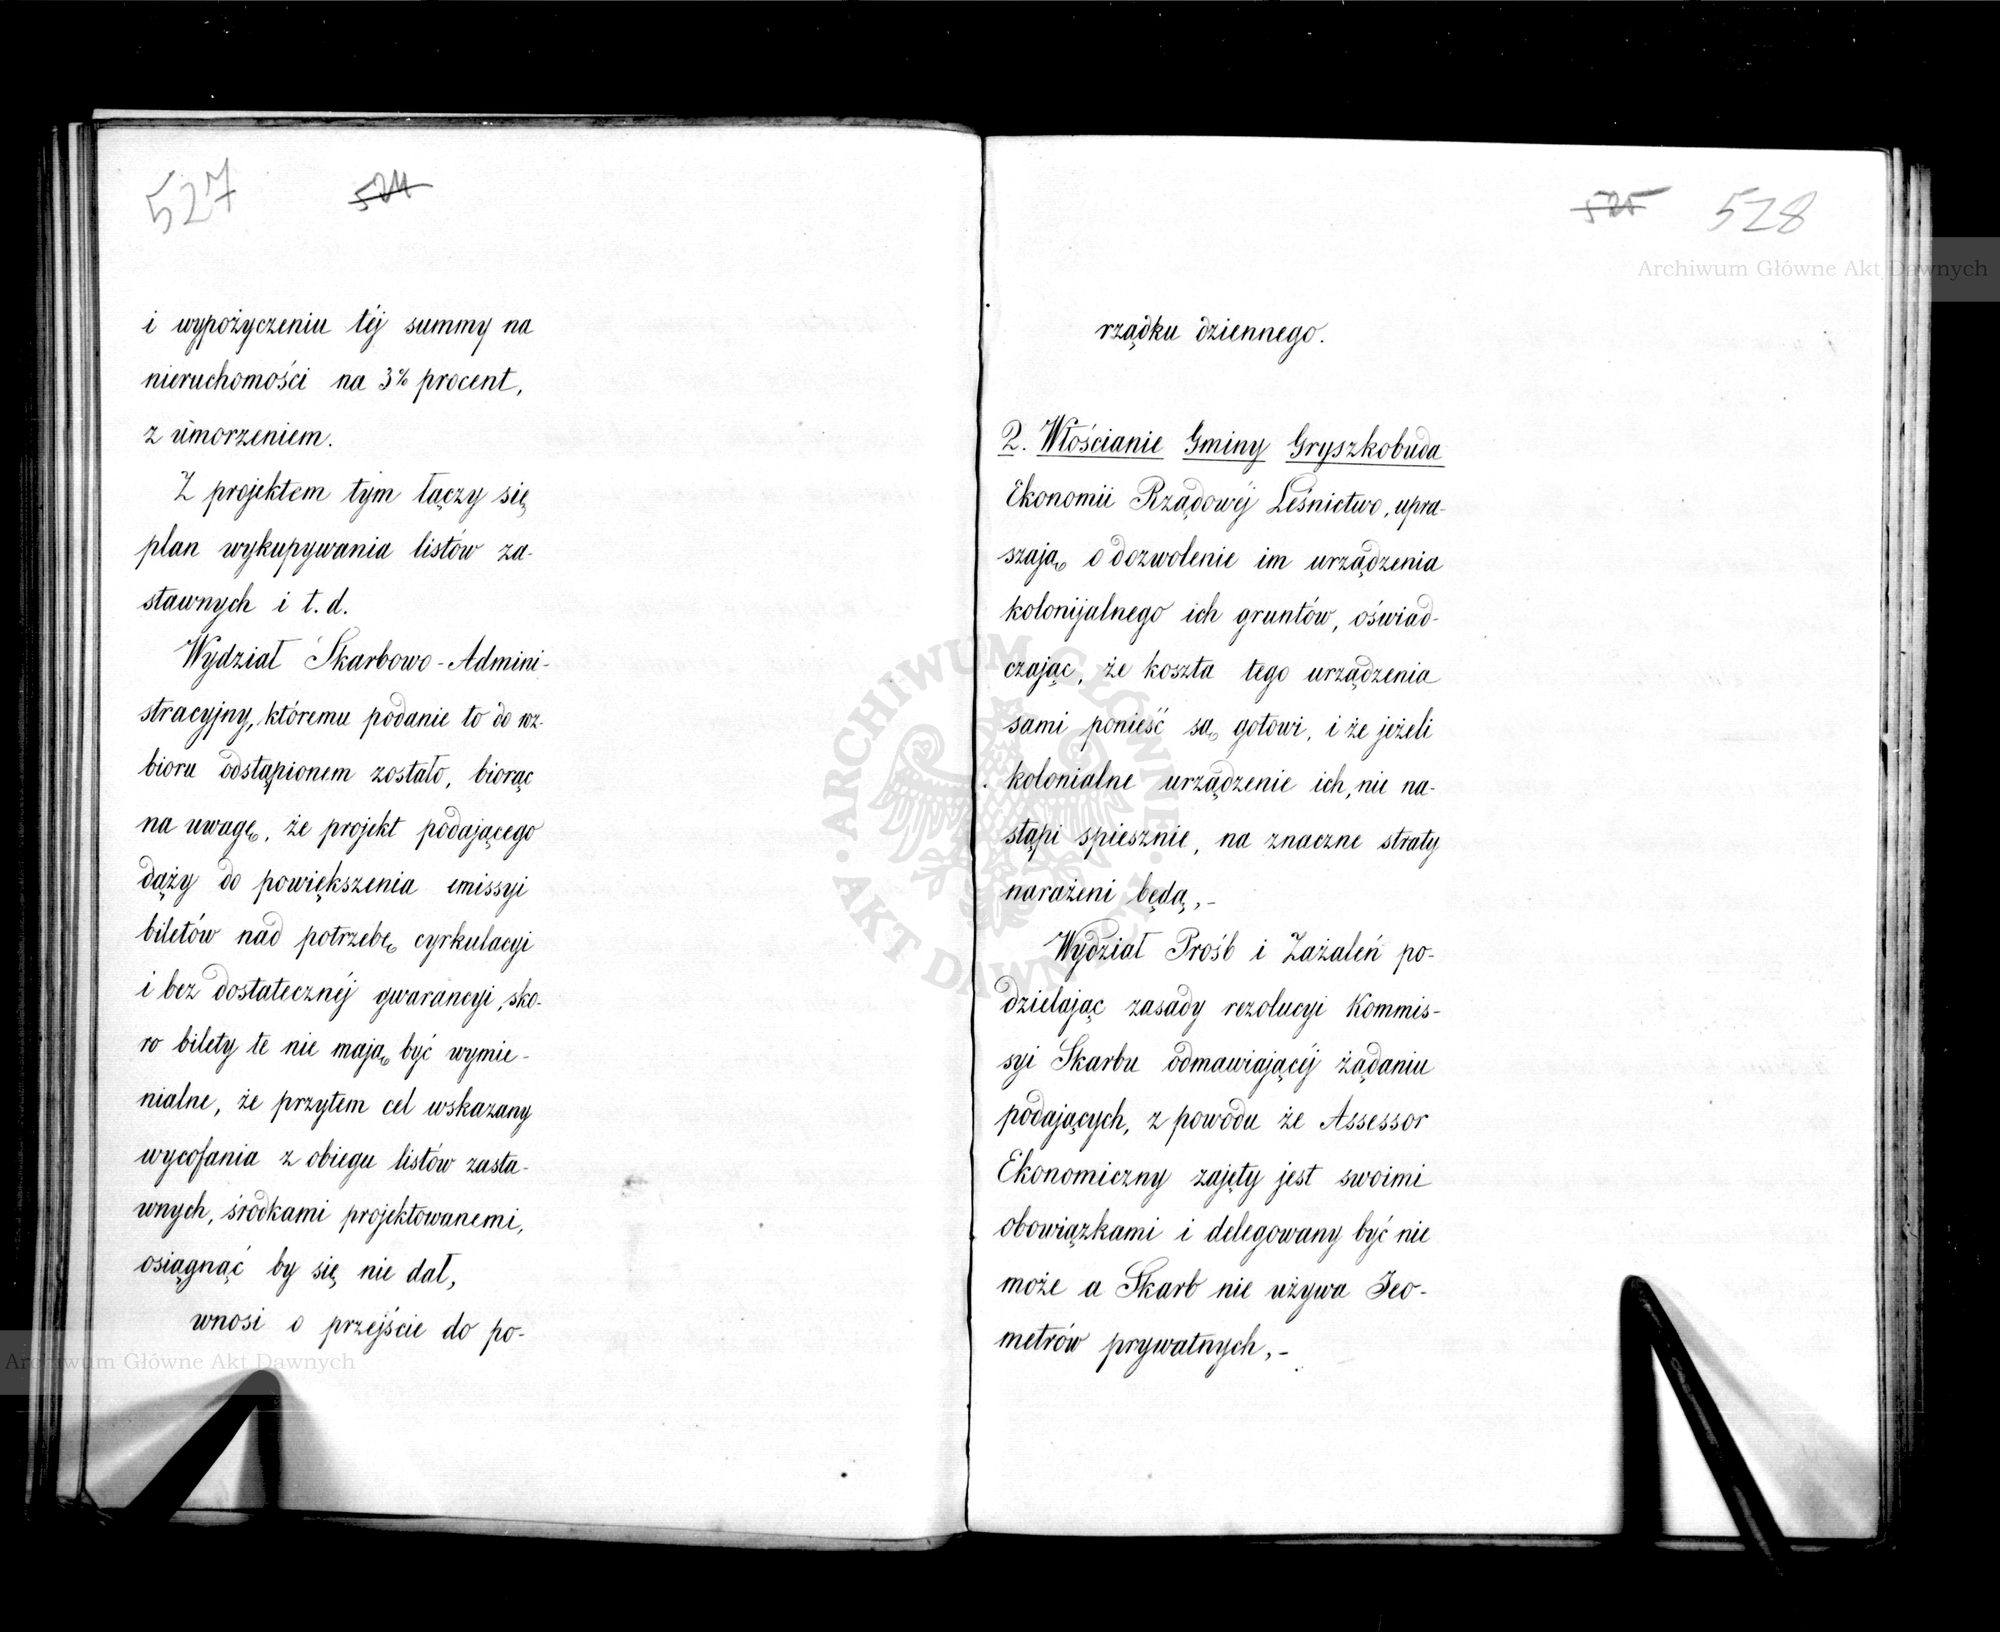 527 524
i wypożyczeniu téj summy na
nieruchomości na 3% procent,
z umorzeniem.
Z projektem tym łączy się
plan wykupywania listów za-
stawnych i t. d.
Wydział Skarbowo-Admini-
stracyjny, któremu podanie to do roz-
bioru odstąpionem zostało, biorąc
na uwagę, że projekt podającego
dąży do powiększenia emissyi
biletów nad potrzebę cyrkulacyi
i bez dostatecznéj gwarancyi, sko-
ro bilety te nie mają być wymie-
nialne, że przytem cel wskazany
wycofania z obiegu listów zasta-
wnych, środkami projektowanemi,
osiągnąć by się nie dał,
wnosi o przejście do po-
525 528
rządku dziennego.
2. Włościanie Gminy Gryszkobuda
Ekonomii Rządowéj Leśnictwo, upra-
szają o dozwolenie im urządzenia
kolonijalnego ich gruntów, oświad-
czając, że koszta tego urządzenia
sami ponieść są gotowi, i że jeżeli
kolonialne urządzenie ich, nie na-
stąpi spiesznie, na znaczne straty
narażeni będą,-
Wydział Próśb i Zażaleń po-
dzielając zasady rezolucyi Kommis-
syi Skarbu odmawiającéj żądaniu
podających, z powodu że Assessor
Ekonomiczny zajęty jest swoimi
obowiązkami i delegowany być nie
może a Skarb nie używa Jeo-
metrów prywatnych,-
Archiwum Główne Akt Dawnych
ARCHIWUM GŁÓWNE AKT DAWNYCH
Archiwum Główne Akt Dawnych